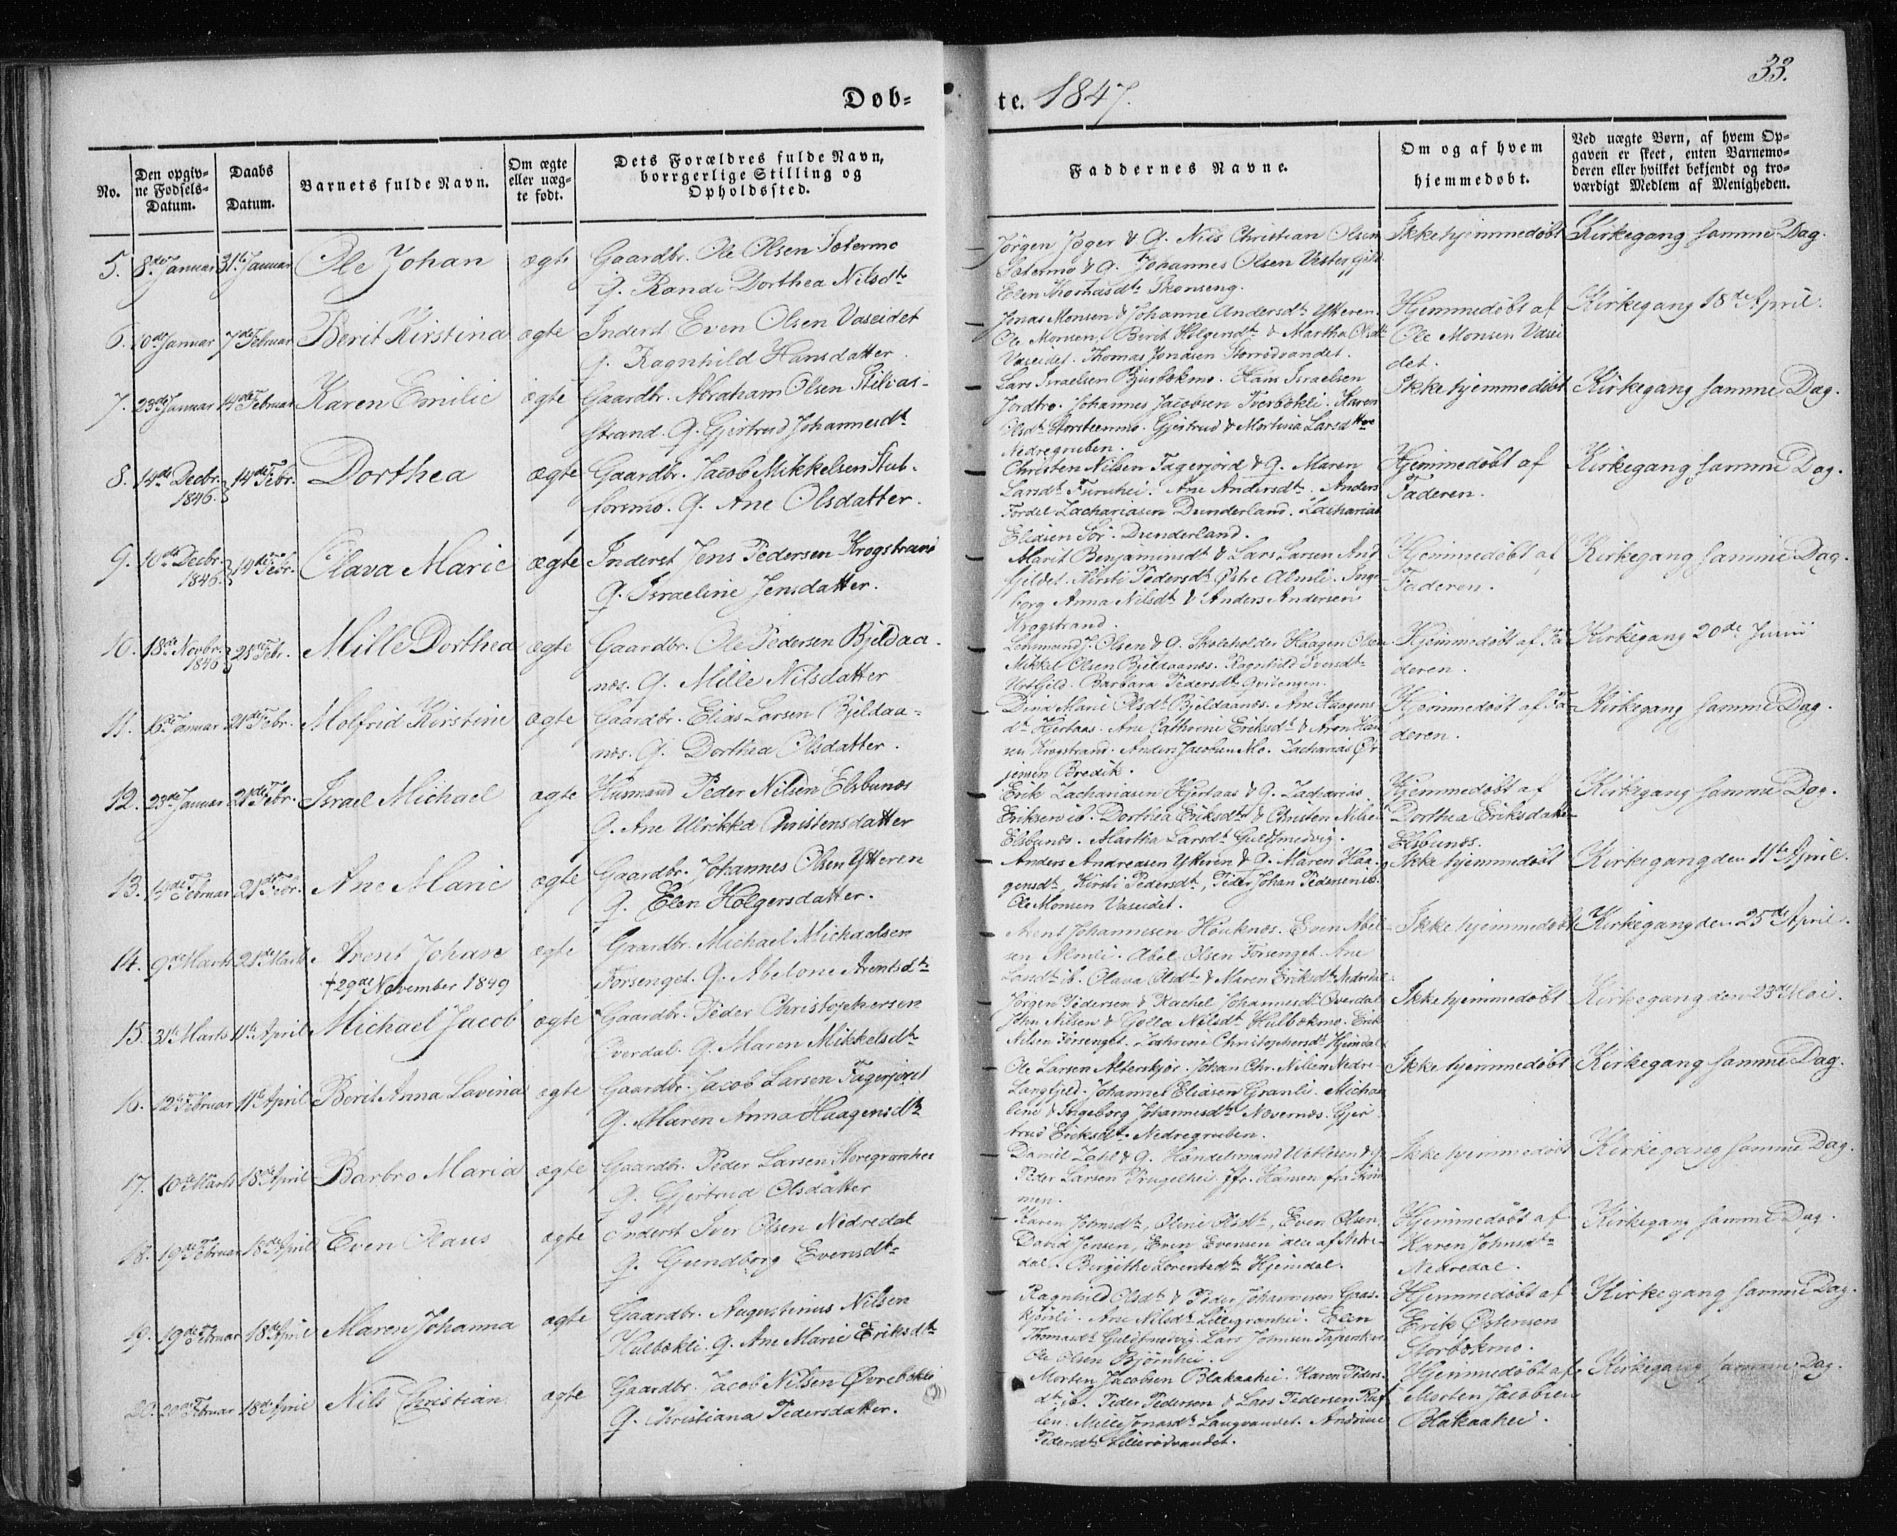 Døb-
te. 1847.
33.
No.
Den opgiv-
ne Fødsels-
Datum.
Daabs
Datum.
Barnets fulde Navn.
Om ægte
eller uæg-
te født.
Dets Forældres fulde Navn,
borgerlige Stilling og
Opholdssted.
Faddernes Navne.
Om og af hvem
hjemmedøbt.
Ved uægte Børn, af hvem Op-
gaven er skeet, enten Barnemo-
deren eller hvilket bekjendt og tro-
værdigt Medlem af Menigheden.
5. 8de Januar 31te Januar Ole Johan ægte Gaardbr. Ole Olsen Sætermo
G. Randi Dorthea Nilsdt.
Jörgen Jöger & G. Nils Christian Olsen
Sætermo & G. Johannes Olsen
Elen Thomasdt. Skonseng.
Ikke hjemmedøbt Kirkegang samme Dag.
6. Januar 7de Februar Berit Kirstina ægte Inderst Even Olsen Vaseidet
G. Ragnhild Hansdatter.
Jonas Monsen & Johanne Andersdt. Ytteren.
Ole Monsen, Berit Holgersdt. & Martha Olsdt.
Vaseidet. Thomas Jonasen Storrödvandet.
Hjemmedøbt af
Ole Monsen Vasei
det.
Kirkegang 18de April.
7. 23de Januar 14de Februar Karen Emilie ægte Gaardbr. Abraham Olsen
strand. G. Gjertrud Johannesdt.
Lars Israelsen Bjurbækmo. Hans Israelsen
Jordbro. Johannes Jacobsen Tverbækli. Karen
Olsdt. Storsteenmo. Gjertrud & Martina Larsdttre
Nedregruben.
Ikke hjemmedøbt Kirkegang samme Dag.
8. 14de Decbr. 1846 14de Febr. Dorthea ægte Gaardbr. Jacob Mikkelsen Stub-
foremo. G. Ane Olsdatter.
Christen Nilsen Fagerjord & G. Maren
Larsdt. Furuhei. Ane Andersdt. Anders
Fordel Zachariasen Dunderland. Zacharias
Eliasen Sör-Dunderland.
Hjemmedøbt af
Faderen.
Kirkegang samme Dag.
9. 10de Decbr. 1846 14de Febr. Olava Marie ægte Inderst Jens Pedersen Krogstrand
G. Israeline Jensdatter.
Marit Benjaminsdt. & Lars Larsen And
fjeldet. Kirsti Pedersdt. Østre Almli. Inge
borg Anna Nilsdt. & Anders Andersen
Krogstrand.
Hjemmedøbt af
Faderen.
Kirkegang samme Dag.
10. 13de Novbr. 1846 21de Febr. Mille Dorthea ægte Gaardbr. Ole Pedersen Bjeldaa-
næs. G. Mille Nilsdatter
Lehnsmand J. Olsen & G. Skoleholder Haagen Olsen
Mikkel Olsen Bjeldaanæs. Ragnhild Svendsdt.
Barbara Pedersdt.
Hjemmedøbt af Fa
deren.
Kirkegang 20de Junii
11. 16de Januar 21de Febr. Molfrid Kirstine ægte Gaardbr. Elias Larsen Bjeldaa-
næs. G. Dorthea Olsdatter.
Dina Marie Olsdt. Bjeldaanæs. Ane Haagens
dt. Hjertaas. Ane Cathrine Eriksdt. & Aron Han
sen Krogstrand. Anders Jacobsen Mo. Zacharias Ør
jensen Bredik.
Hjemmedøbt af Fa
deren.
Kirkegang samme Dag.
12. 23de Januar 21de Febr. Israel Michael ægte Husmand Peder Nilsen Elsbunæs
G. Ane Ulrikka Christensdatter
Erik Zachariasen Hjertaas & G. Zacharias
Eriksen ib. Dorthea Eriksdt. & Christen Nilsen
Elsbunæs. Martha Larsdt. Guldsmedvig.
Hjemmedøbt af
Dorthea Eriksdatter
Elsbunæs.
Kirkegang samme Dag.
13. 14de Februar 21de Febr. Ane Marie ægte Gaardbr. Johannes Olsen Ytteren
G. Elen Holgersdatter.
Anders Andreasen Ytteren & G. Maren Haa-
gensdt. Kirsti Pedersdt., Peder Johan Pedersen ib.
Ole Monsen Vaseidet.
Ikke hjemmedøbt Kirkegang den 11te April.
14. 9de Marts 21de Marts Arent Johan ægte Gaardbr. Michael Michaelsen
† 29de November 1849
Forsenget. G. Abelone Arentsdt.
Arent Johannesen Houknæs. Even Abel-
sen Almli. Abel Olsen Forsenget. Ane
ib. Olava Olsdt. & Maren Eriksdt. Nedredal.
Ikke hjemmedøbt Kirkegang den 25de April.
15. 31te Marts 11te April Michael Jacob ægte Gaardbr. Peder Christophersen
Overdal. G. Maren Mikkelsdt.
Jörgen Pedersen & Rachel Johannesdt. Overdal
John Nilsen & Golla Nilsdt. Hulbækmo. Erik
Nilsen Forsenget. Cathrine Christophersdt. Hjemdal.
Ikke hjemmedøbt Kirkegang den 23de Mai.
16. 12te Februar 11te April Berit Anna Lovina ægte Gaardbr. Jacob Larsen Fagerjord
G. Maren Anna Haagensdt.
Ole Larsen Alterskjær. Johan Chr. Nilsen Nedre-
Langfjeld. Johannes Eliasen Granli. Michae
line & Ingeborg Johannesdt. Nævernæs. Gjer
trud Eriksdt. Nedregruben.
Ikke hjemmedøbt Kirkegang samme Dag.
17. 10de Marts 18de April Barbro Maria ægte Gaardbr. Peder Larsen Storegranhei
G. Gjertrud Olsdatter
Daniel Zahl & G. Handelsmand
Peder Larsen
men.
Ikke hjemmedøbt Kirkegang samme Dag.
18. 19de Februar 18de April Even Olaus ægte Inderst Iver Olsen Nedredal
G. Gundborg Evensdt.
Karen Johnsdt., Oline Olsdt., Even Olsen,
David Jensen, Even Evensen alle af Nedre-
dal. Birgithe Lorentsdt. Hjemdal.
Hjemmedøbt af
Karen Johnsdt.
Nedredal.
Kirkegang samme Dag.
19. 19de Februar 18de April Maren Johanna ægte Gaardbr. Augustinus Nilsen
Hulbækli. G. Ane Marie Eriksdt.
Ragnhild Olsdt. & Peder Johannesen Gaas-
kjönli. Ane Nilsdt. Lillegranhei. Elen
Thomasdt. Guldsmedvig. Lars Johnsen
Ole Olsen Bjørnhei.
Hjemmedøbt af
Erik Østensen
Storbækmo.
Kirkegang samme Dag.
20. 20de Februar 18de April Nils Christian ægte Gaardbr. Jacob Nilsen Øvrebækli
G. Christiana Pedersdatter.
Morten Jacobsen Blakaahei. Karen Peders-
dt. ib. Peder Pedersen & Lars Pedersen
Mille Jonasdt. Langvandet. Andrine
Pedersdt. Lillerödvandet.
Hjemmedøbt af
Morten Jacobsen
Blakaahei.
Kirkegang samme Dag.